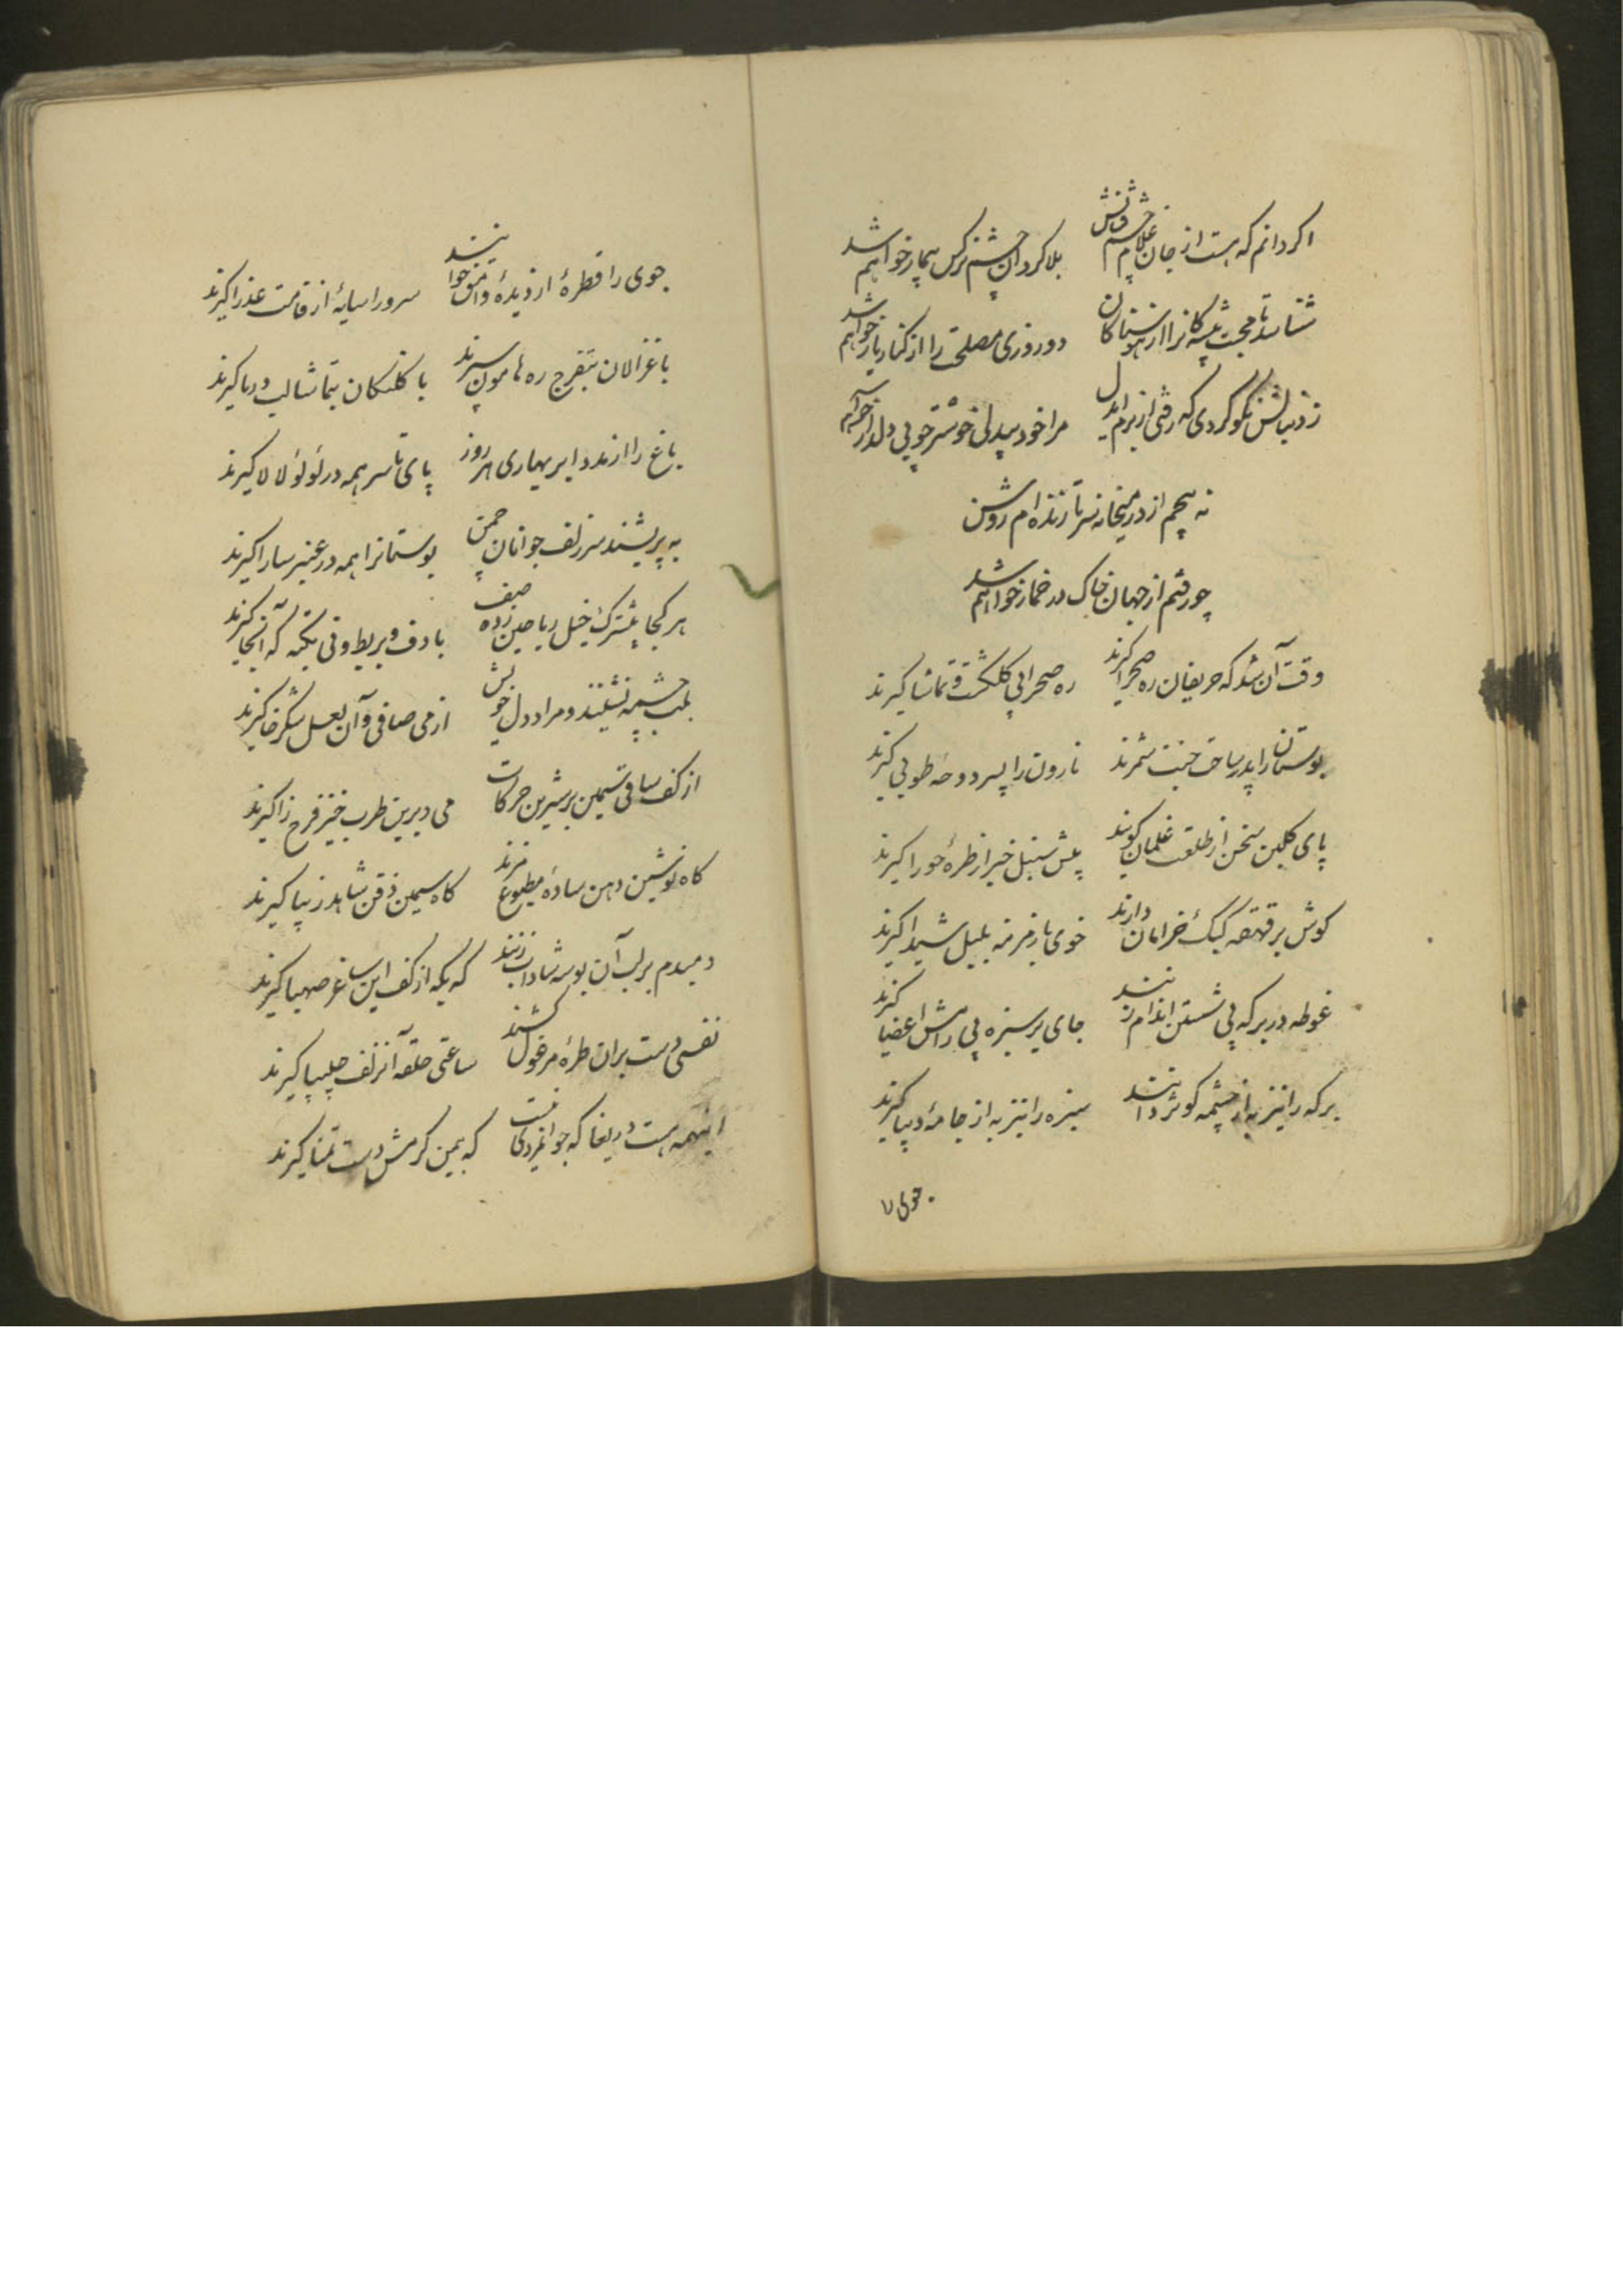 اگر دانم که هست از جان غلام چشم فتانش بلا گردان چشم نرگس بیمار خواهم شد
شناسد تا محبت پیشه کانرا از هوسناکان دو روزی مصلحت را از کنار یار خواهم شد
ز دنبالش نکو کردی که رفتی از برم ایدل مرا خود بیدلی خوشتر چو بی دلدار خواهم شد
نه پیچم از در میخانه سر تا زنده ام روشن
چو رفتم از جهان خاک در خمار خواهم شد
وقت آن شد که حریفان ره صحرا گیرند ره صحرا پی گلگشت و تماشا گیرند
بوستان را بدر ساحت جنت شمرند نارون را پسر دوحه طوبی گیرند
پای گلبن سخن از طلعت غلمان گویند پیش سنبل خبر از طره حورا گیرند
گوش بر قهقهه کبک خرامان دارند خوی با زمزمه بلبل شیدا گیرند
غوطه در برکه پی شستن اندام زنند جای بر سبزه پی رامش اعضا گیرند
برکه را نیز به از چشمه کوثر دانند سبزه را نیز به از جامه دیبا گیرند
جوی را
جوی را قطرهٔ از دیدهٔ وامق خوانند سرو را سایهٔ از قامت عذرا گیرند
با غزالان بتفرج ره هامون سپرند با کلنکان بتماشا لب دریا گیرند
باغ را از مدد ابر بهاری هر روز پای تا سر همه در لؤلؤ لالا گیرند
به پریشند سر زلف جوانان چمن بوستانرا همه در عنبر سارا گیرند
هر کجا بیشترک خیل ریاحین زده صف با دف و بربط و نی تکیه که آنجا گیرند
بلب چشمه نشینند و مراد دل خویش از می صافی و آن لعل شکرخا گیرند
از کف ساقی سیمین بر شیرین حرکات می دیرین طرب خیز فرح زا گیرند
گاه نوشین دهن سادهٔ مطبوع مزند گاه سیمین ذقن شاهد زیبا گیرند
دمبدم بر لب آن بوسه شاداب زنند که بکه از کف این ساغر صهبا گیرند
نفسی دست بران طرهٔ مرغول کشند ساعتی حلقه آنزلف چلیپا گیرند
اینهمه هست دریغا که جوانمردی نیست که بمین کرمش دست تمنا گیرند